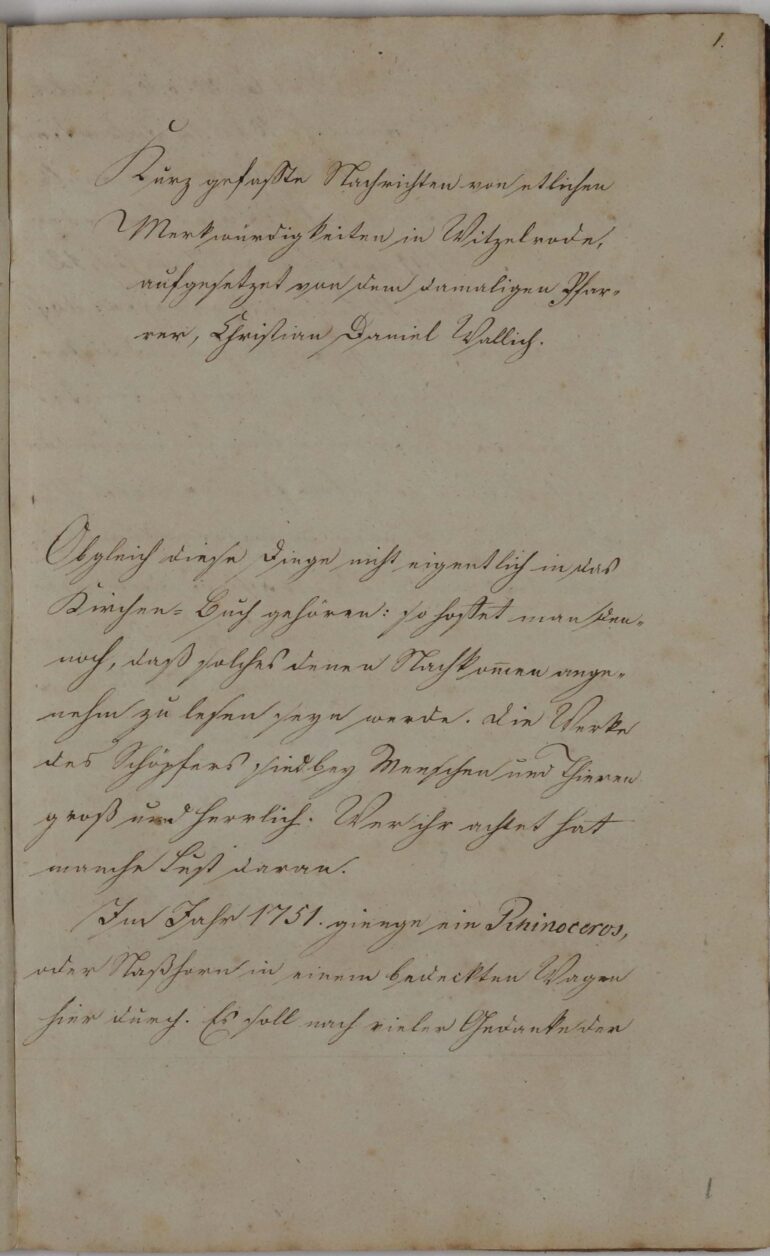 1.
Kurz gefaßte Nachrichten von etlichen
Merkwürdigkeiten in Witzelrode,
aufgesetzet von dem damaligen Pfar-
rer, Christian Daniel Wallich.
Obgleich diese Dinge nicht eigentlich in das
Kirchen-Buch gehören: so hoffet man den-
noch, daß solches denen Nachkom̅en ange-
nehm zu lesen seyn werde. Die Werke
des Schöpfers sind bey Menschen und Thieren
groß und herrlich. Wer ihr achtet hat
manche Lust daran.
Im Jahr 1751. gienge ein Rhinoceros,
oder Naßhorn in einem bedeckten Wagen
hier durch. Es soll nach vieler Gedanken der
1